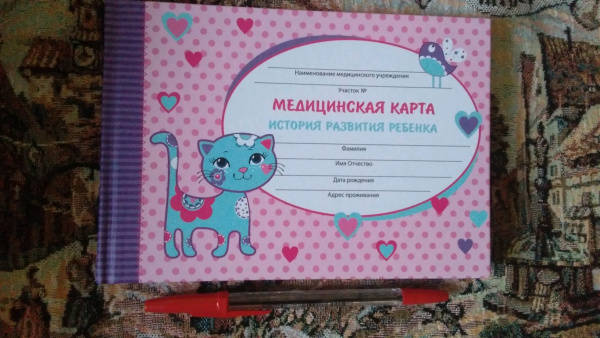 Наименование медицинского учреждения
Участок №
МЕДИЦИНСКАЯ КАРТА
ИСТОРИЯ РАЗВИТИЯ РЕБЕНКА
Фамилия
Имя Отчество
Дата рождения
Адрес проживания